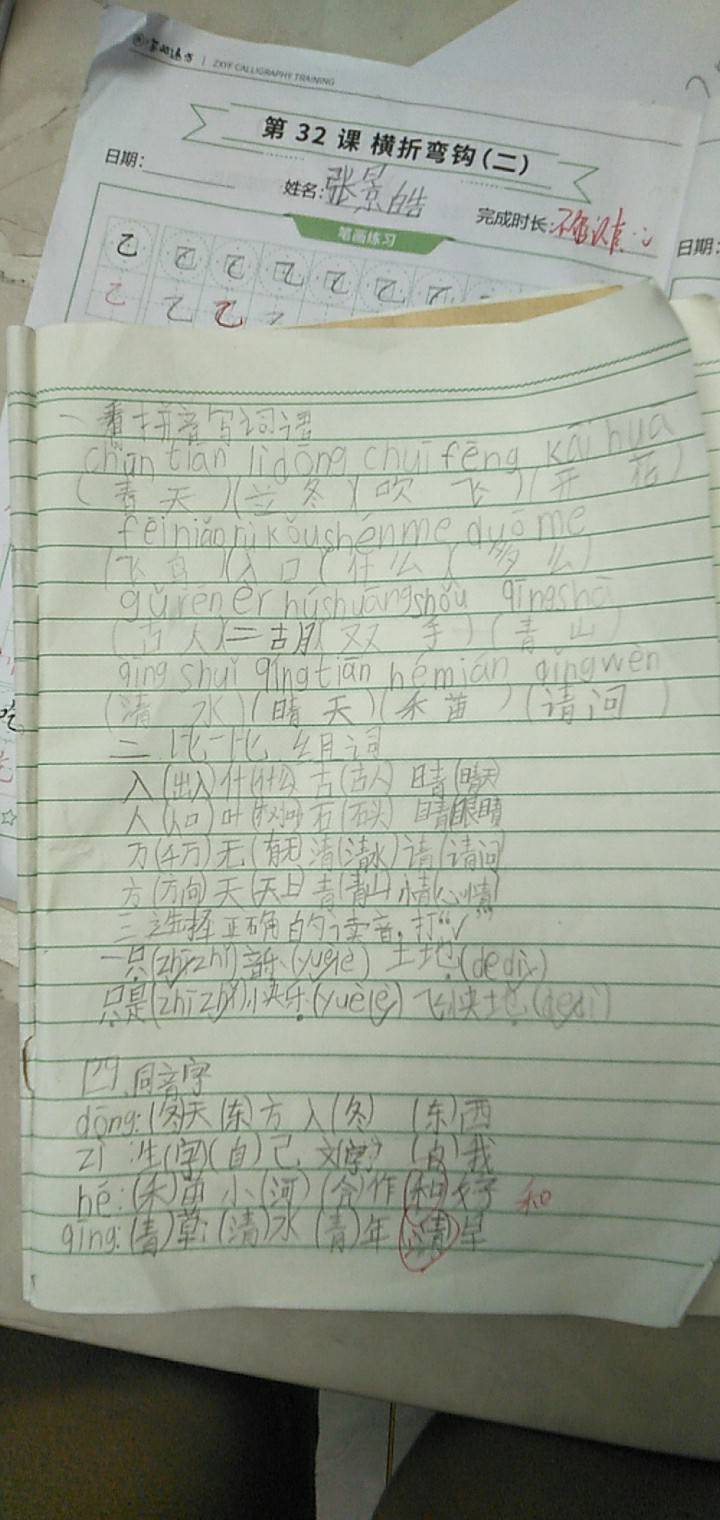 ZXYF CALLIGRAPHY TRAINING
第 32 课 横折弯钩(二)
日期: 姓名:张景皓 完成时长:不够认真
日期:
笔画练习
一 看拼音写词语
chūn tiān lì dōng chuī fēng kāi huā
(春 天)(立 冬)(吹 飞)(开 花)
fēi niǎo rù kǒu shén me duō me
(飞 鸟)(入 口)(什 么)(多 么)
gǔ rén èr hú shuāng shǒu qīng shā
(古 人)(二 胡)(双 手)(青 山)
qīng shuǐ qíng tiān hé miáo qǐng wèn
(清 水)(晴 天)(禾 苗)(请 问)
二 比一比, 组词
入(出入) 什(什么) 古(古人) 晴(晴天)
人(人口) 叶(树叶) 石(石头) 睛(眼睛)
万(千万) 无(有无) 清(清水) 请(请问)
方(方向) 天(天上) 青(青山) 情(心情)
三 选择正确的读音,打“√”
一只(zhī zhǐ) 音乐(yuè lè) 土地(de dì)
只是(zhī zhǐ) 快乐(yuè lè) 飞快地(de dì)
四、同音字
dōng:(冬)天 (东)方 入(冬) (东)西
zì:生(字) (自)己 文(字) (自)我
hé:(禾)苗 小(河) (合)作 (和)好 和
qīng:(青)草 (清)水 (青)年 (清)早